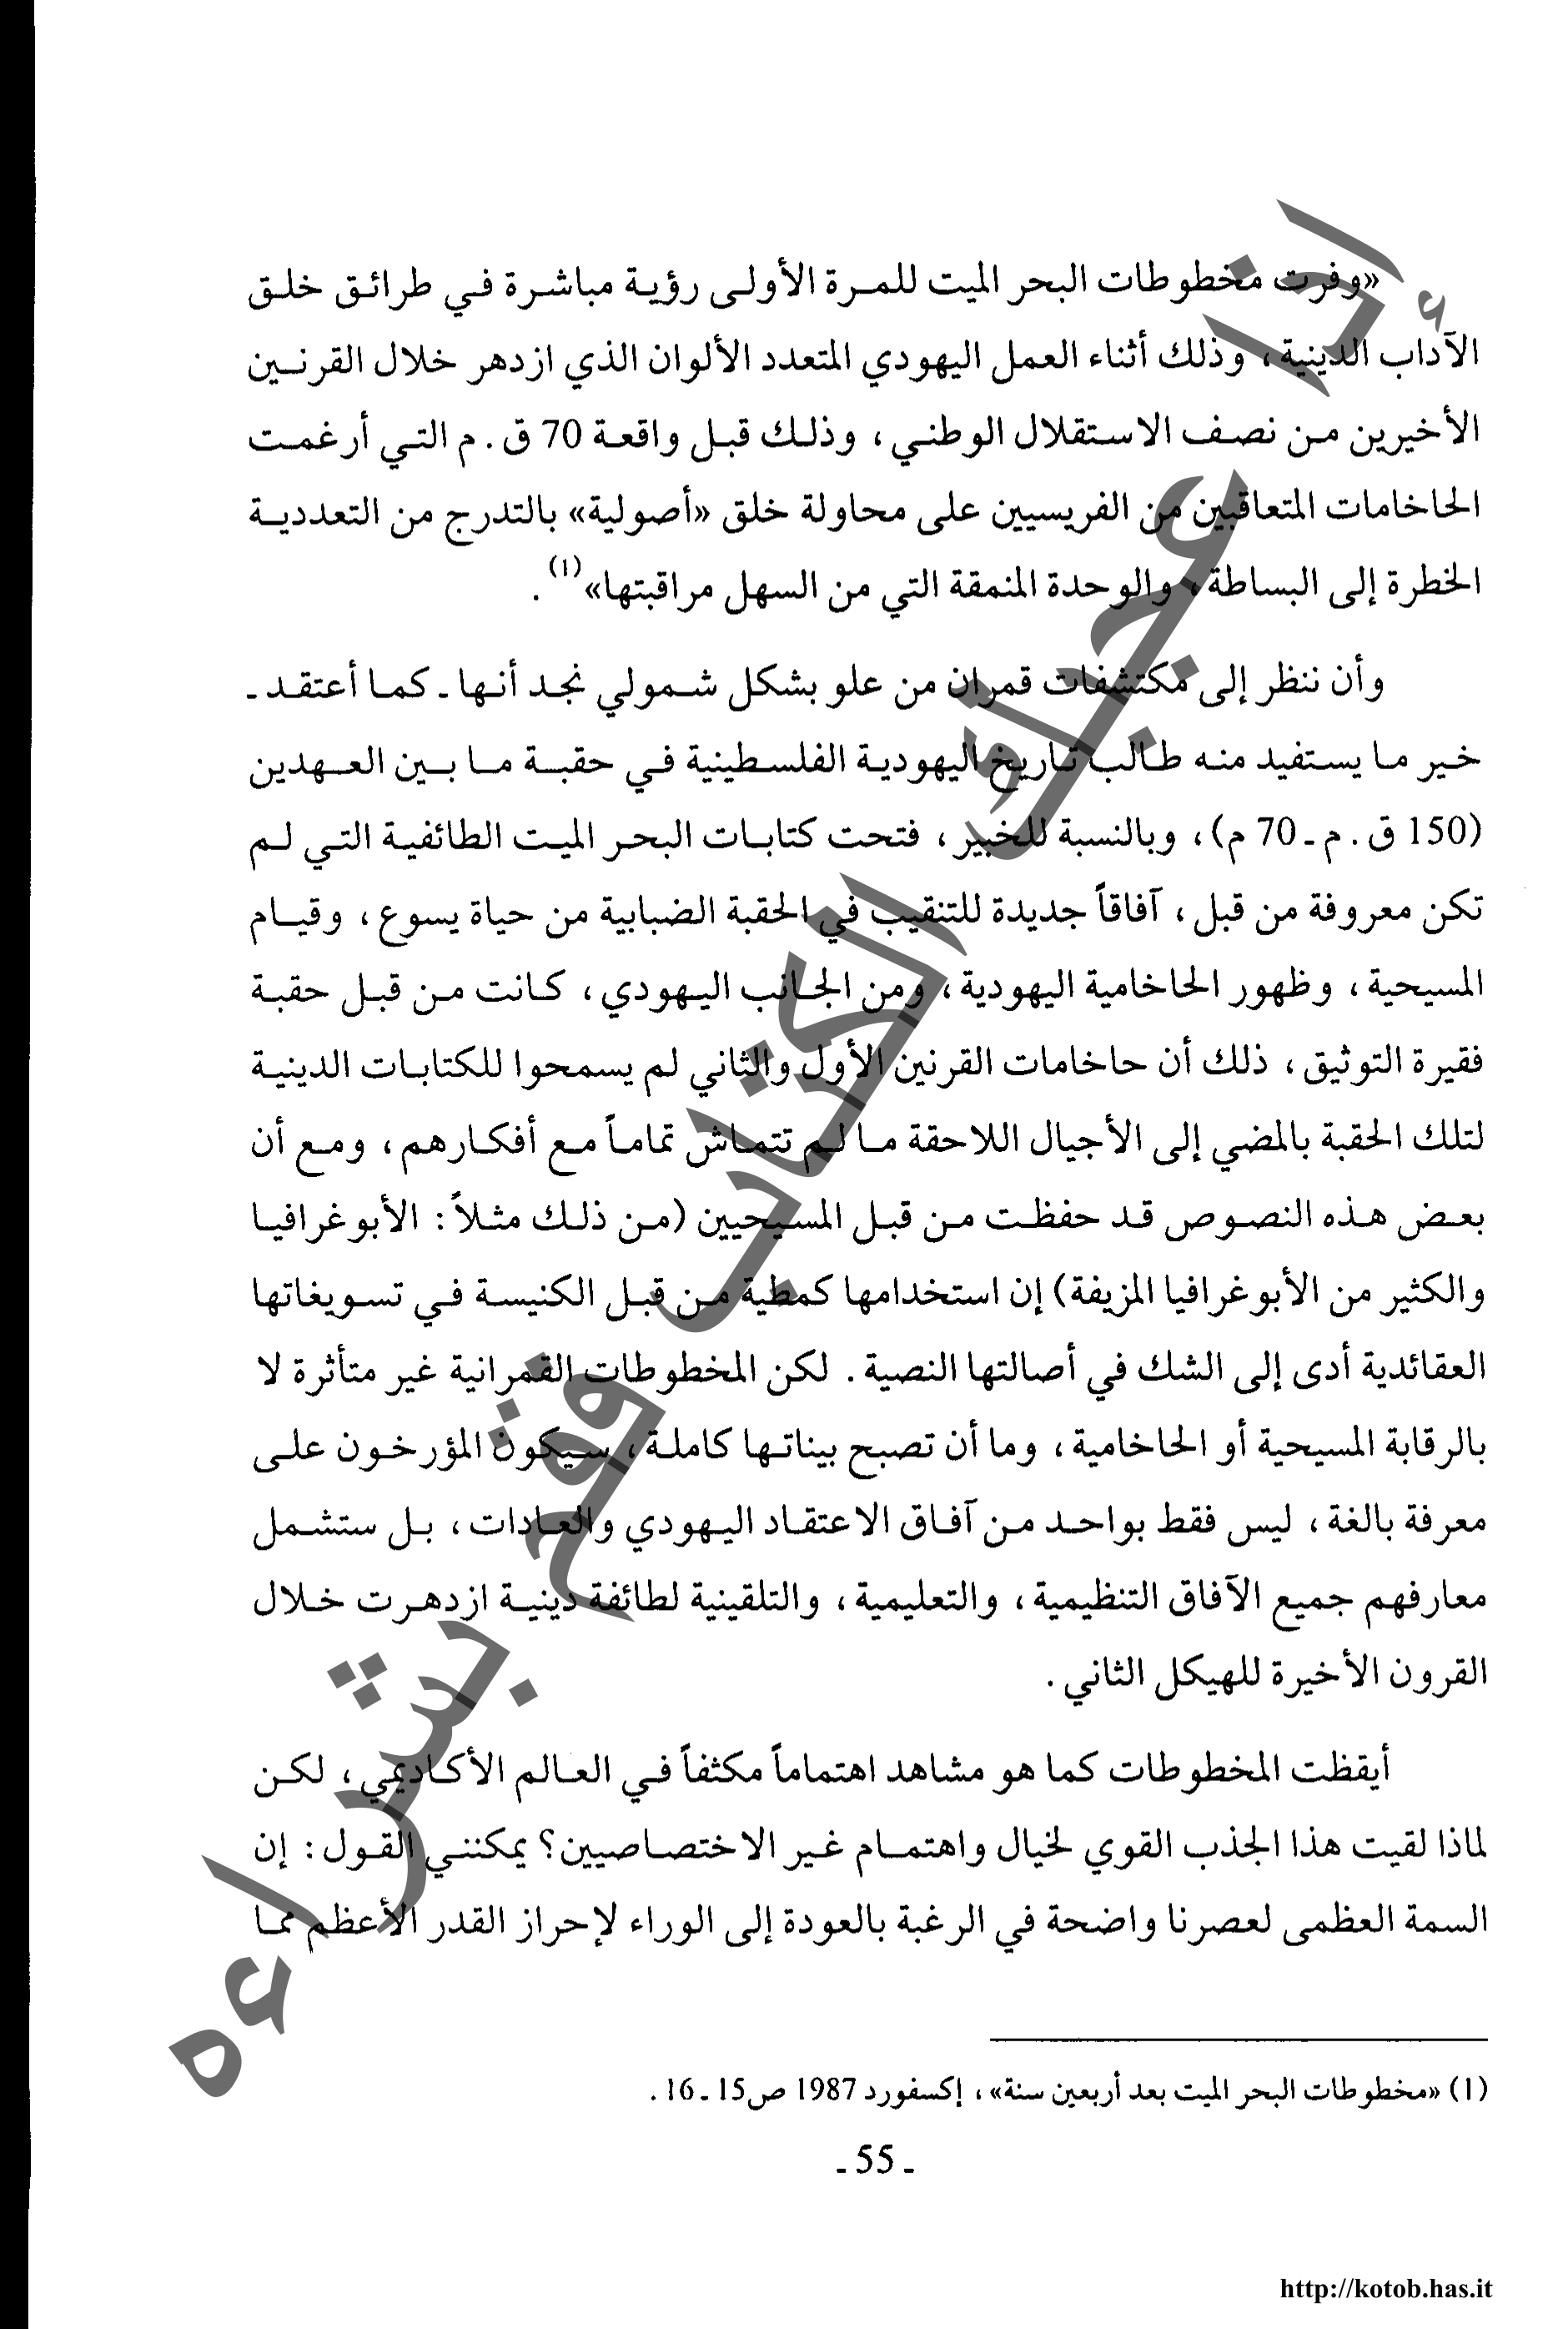 «وفرت مخطوطات البحر الميت للمرة الأولى رؤية مباشرة في طرائق خلق
الآداب الدينية، وذلك أثناء العمل اليهودي المتعدد الألوان الذي ازدهر خلال القرنين
الأخيرين من نصف الاستقلال الوطني، وذلك قبل واقعة 70 ق.م التي أرغمت
الحاخامات المتعاقبين من الفريسيين على محاولة خلق «أصولية» بالتدرج من التعددية
الخطرة إلى البساطة، والوحدة المنمقة التي من السهل مراقبتها»(1).
وأن ننظر إلى مكتشفات قمران من علو بشكل شمولي نجد أنها ـ كما أعتقد ـ
خير ما يستفيد منه طالب تاريخ اليهودية الفلسطينية في حقبة ما بين العهدين
(150 ق.م ـ 70 م)، وبالنسبة للخبير، فتحت كتابات البحر الميت الطائفية التي لم
تكن معروفة من قبل، آفاقاً جديدة للتنقيب في الحقبة الضبابية من حياة يسوع، وقيام
المسيحية، وظهور الحاخامية اليهودية، ومن الجانب اليهودي، كانت من قبل حقبة
فقيرة التوثيق، ذلك أن حاخامات القرنين الأول والثاني لم يسمحوا للكتابات الدينية
لتلك الحقبة بالمضي إلى الأجيال اللاحقة ما لم تتماش تماماً مع أفكارهم، ومع أن
بعض هذه النصوص قد حفظت من قبل المسيحيين (من ذلك مثلاً: الأبوغرافيا
والكثير من الأبوغرافيا المزيفة) إن استخدامها كمطية من قبل الكنيسة في تسويغاتها
العقائدية أدى إلى الشك في أصالتها النصية. لكن المخطوطات القمرانية غير متأثرة لا
بالرقابة المسيحية أو الحاخامية، وما أن تصبح بيناتها كاملة، سيكون المؤرخون على
معرفة بالغة، ليس فقط بواحد من آفاق الاعتقاد اليهودي والعادات، بل ستشمل
معارفهم جميع الآفاق التنظيمية، والتعليمية، والتلقينية لطائفة دينية ازدهرت خلال
القرون الأخيرة للهيكل الثاني.
أيقظت المخطوطات كما هو مشاهد اهتماماً مكثفاً في العالم الأكاديمي، لكن
لماذا لقيت هذا الجذب القوي لخيال واهتمام غير الاختصاصيين؟ يمكنني القول: إن
السمة العظمى لعصرنا واضحة في الرغبة بالعودة إلى الوراء لإحراز القدر الأعظم مما
(1) «مخطوطات البحر الميت بعد أربعين سنة»، إكسفورد 1987 ص15 ـ 16.
ـ 55 ـ
http://kotob.has.it
إذا أعجبك الكتاب فقم بشراءه